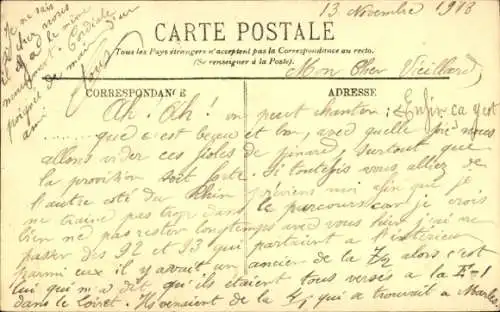 13 Novembre 1918
CARTE POSTALE
Tous les Pays étrangers n'acceptent pas la Correspondance au recto.
(Se renseigner à la Poste).
Mon Cher Vieillard,
CORRESPONDANCE
ADRESSE
Ah! Ah! on peut chanter: Enfin ça y est
que c'est beau et bon, avec quelle nous
allons vider ces fioles de pinard, surtout que
la provision soit forte. Si toutefois vous alliez de
l'autre coté du Rhin préviens moi afin que je
ne traine pas trop dans le parcours car je crois
bien ne pas rester longtemps avec vous hier j'ai vu
passer des 92 et 93 qui partaient a l'intérieur
parmi eux il y avait un ancien de la alors c'est
lui qui m'a dit qu'ils étaient tous versés a la
dans le Loiret. Ils venaient de la qui se trouvait a
Je ne sais
chez vous
il y a le même
Cordiale
poignée de main
ami